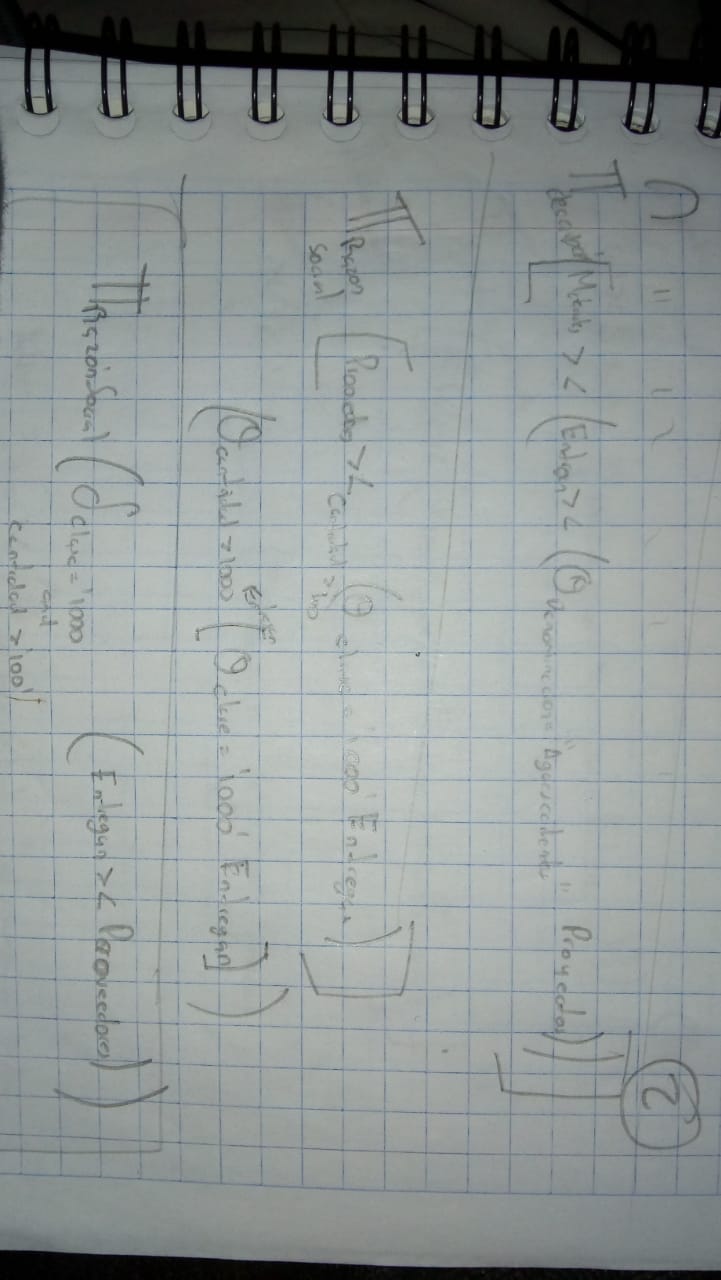 2
Π descripción [Materiales >< (Entregan >< (σ Denominacion = "Aguascalientes" Proyectos))]
Π Razón Social [Proveedores >< (σ clave = '1000' Entregan)]
(σ cantidad > 1000 [σ clave = '1000' Entregan])
Π RazónSocial (σ clave = '1000 and cantidad > '100' (Entregan >< Proveedores))